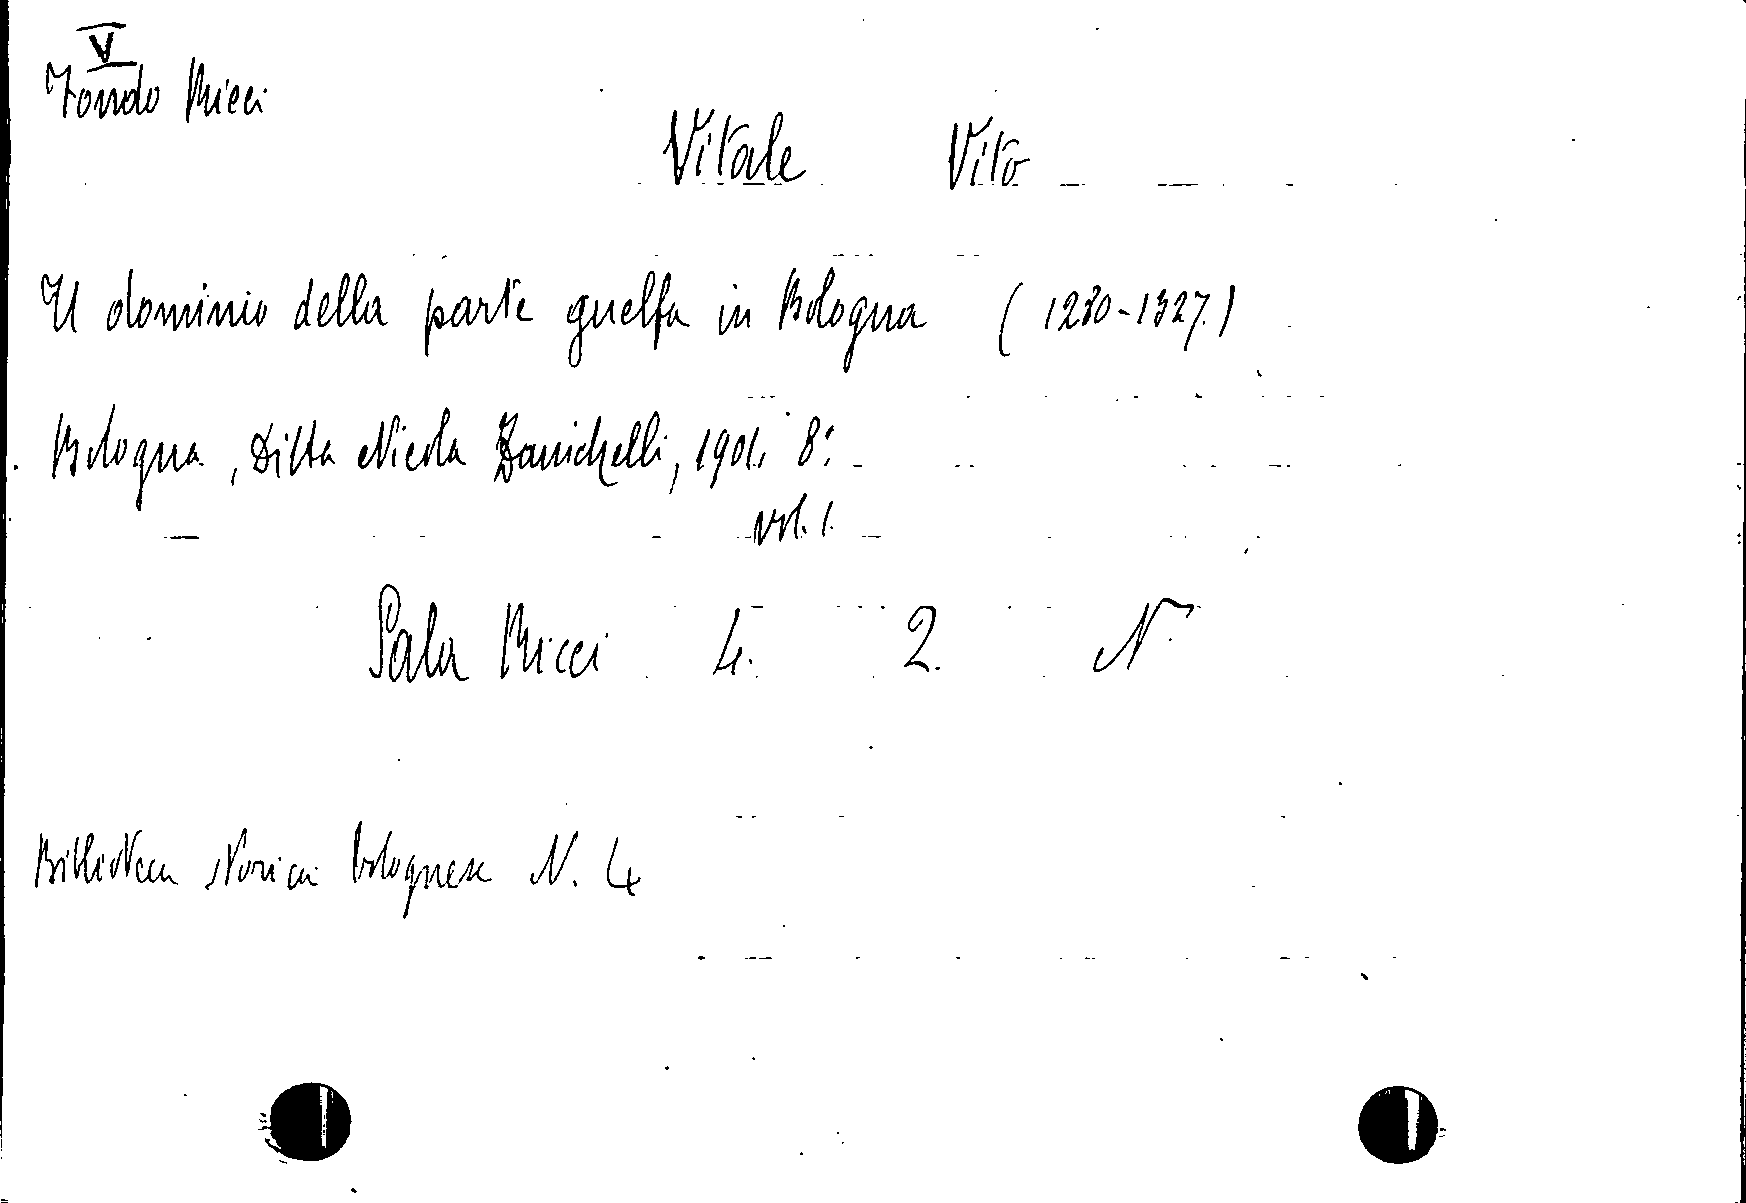 V
Fondo Ricci
Vitale Vito
Il dominio della parte guelfa in Bologna (1280-1327.)
Bologna, Ditta Nicola Zanichelli, 1901. 8:
vol. 1.
Sala Ricci 4. 2. N.
Biblioteca storica bolognese N. 4